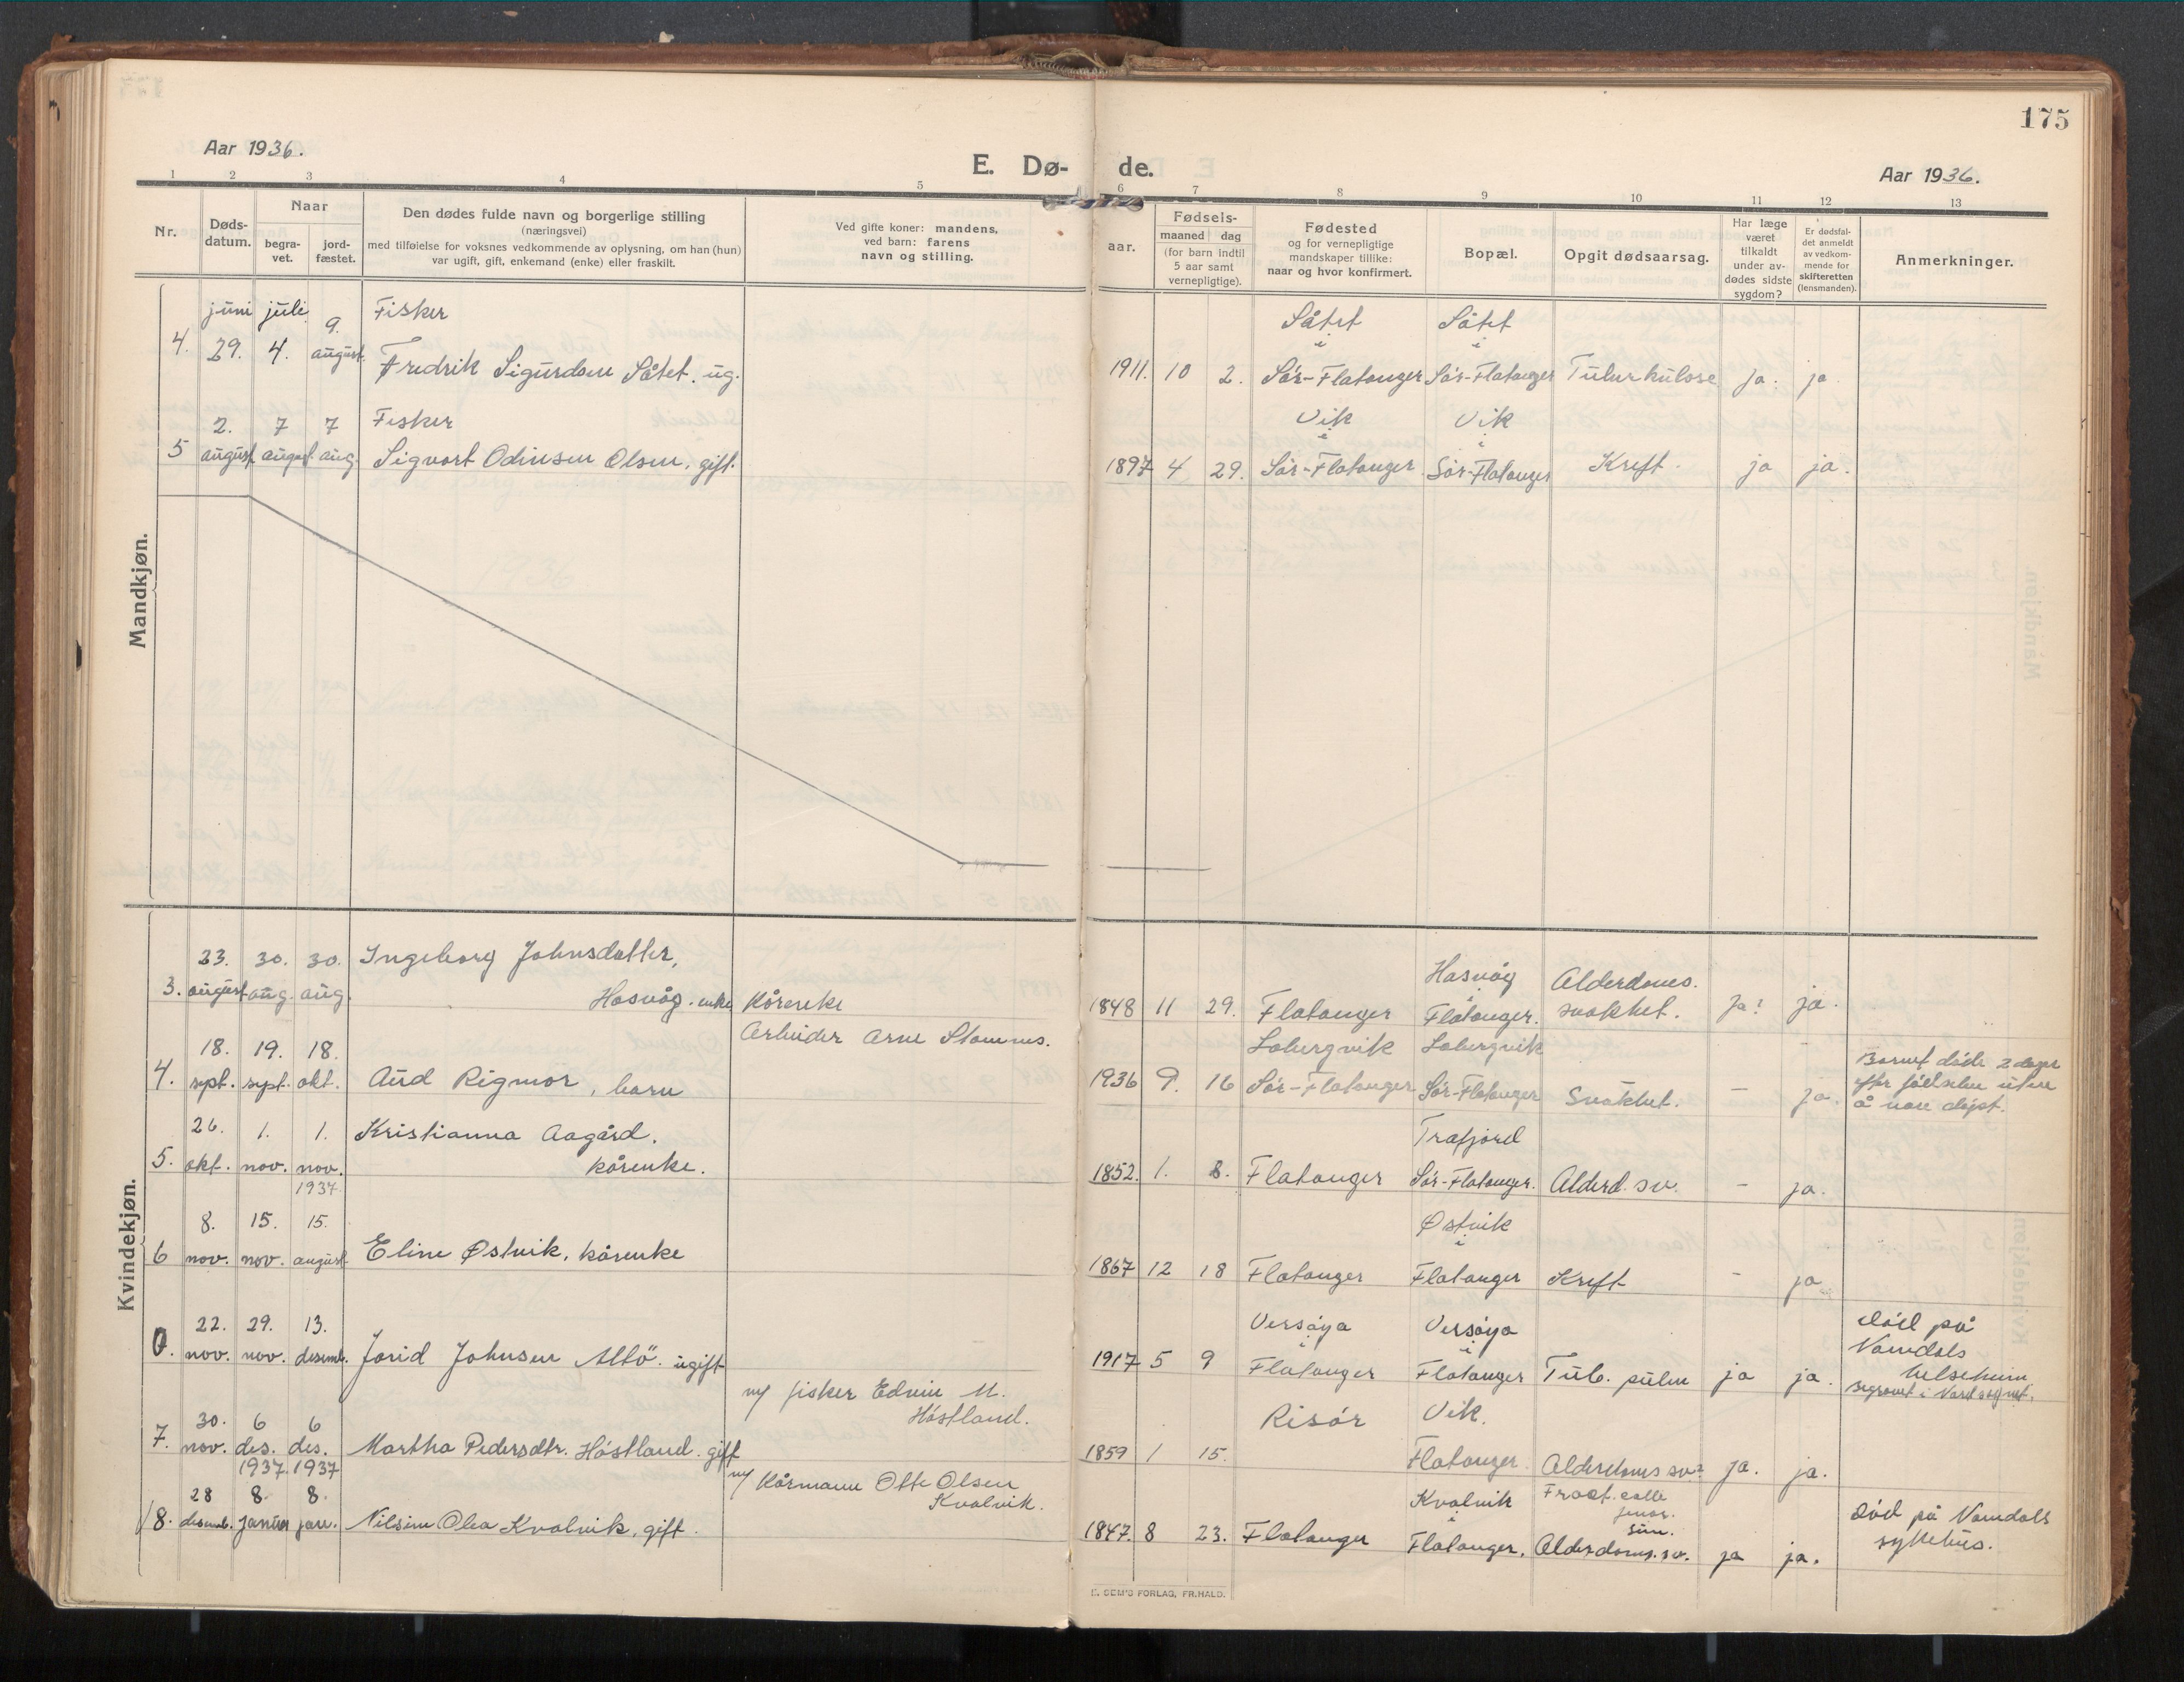 175
Aar 1936.
E. Dø- de.
Aar 1936.
1 2 3 4 5 6 7 8 9 10 11 12 13
Nr.
Døds-
datum.
Naar
begra-
vet.
jord-
fæstet.
Den dødes fulde navn og borgerlige stilling
(næringsvei)
med tilføielse for voksnes vedkommende av oplysning, om han (hun)
var ugift, gift, enkemand (enke) eller fraskilt.
Ved gifte koner: mandens,
ved barn: farens
navn og stilling.
aar.
Fødsels-
maaned dag
(for barn indtil
5 aar samt
vernepligtige).
Fødested
og for vernepligtige
mandskaper tillike:
naar og hvor konfirmert.
Bopæl.
Opgit dødsaarsag.
Har læge
været
tilkaldt
under av-
dødes sidste
sygdom?
Er dødsfal-
det anmeldt
av vedkom-
mende for
skifteretten
(lensmanden).
Anmerkninger.
Mandkjøn.
juni juli 9. Fisker Såtet Såtet
i i
4. 29. 4. august. Fredrik Sigurdsen Såtet. ug. 1911. 10 2. Sør-Flatanger Sør-Flatanger Tuberkulose ja. ja.
2. 7 7 Fisker Vik Vik
i i
5 august august aug. Sigvart Odinsen Olsen, gift. 1897 4 29. Sør-Flatanger Sør-Flatanger Kreft. ja ja.
Kvindekjøn.
23. 30. 30. Ingeborg Johnsdatter, Hasvåg Alderdoms.
3. august aug. aug. Hasvåg. enke Kårenke 1848 11 29. Flatanger Flatanger. svakhet. ja? ja.
18. 19. 18. Arbeider Arne Stamnes. Lobergvik Lobergvik
4. sept. sept. okt. Aud Rigmor, barn 1936 9. 16 Sør-Flatanger Sør-Flatanger Svakhet. - ja.
Barnet døde 2 dager
efter fødselen uten
å være døpt.
26. 1. 1. Kristianna Aagård. Trafjord
5. okt. nov. nov. kårenke. 1852. 1. 8. Flatanger Sør-Flatanger. Alderd. sv. - ja.
1937
8. 15. 15. Østvik
i
6 nov. nov. august Eline Østvik, kårenke 1867 12 18 Flatanger Flatanger Kreft - ja
22. 29. 13. Versøya Versøya
i i
0. nov. nov. desemb. Jorid Johnsen Altö. ugift 1917 5 9 Flatanger Flatanger Tub. pulm ja ja.
død på
Namdals
helseheim
begravet i Vard sognet.
m/ fisker Edvin M.
Høstland.
30. 6 6 Risør Vik.
7. nov. des. des. Martha Pedersdtr. Høstland. gift 1859 1 15. Flatanger Alderdoms sv. ja. ja.
1937 1937
m/ Kårmann Otte Olsen
Kvalvik.
28 8. 8. Kvalvik Fract. colli
femor.
sin.
8. desemb. januar jan. Nilsine Olea Kvalvik, gift. 1847. 8 23. Flatanger Flatanger. Alderdoms. sv. ja ja.
Død på Namdals
sykehus.
E. SEM'S FORLAG, FR.HALD.